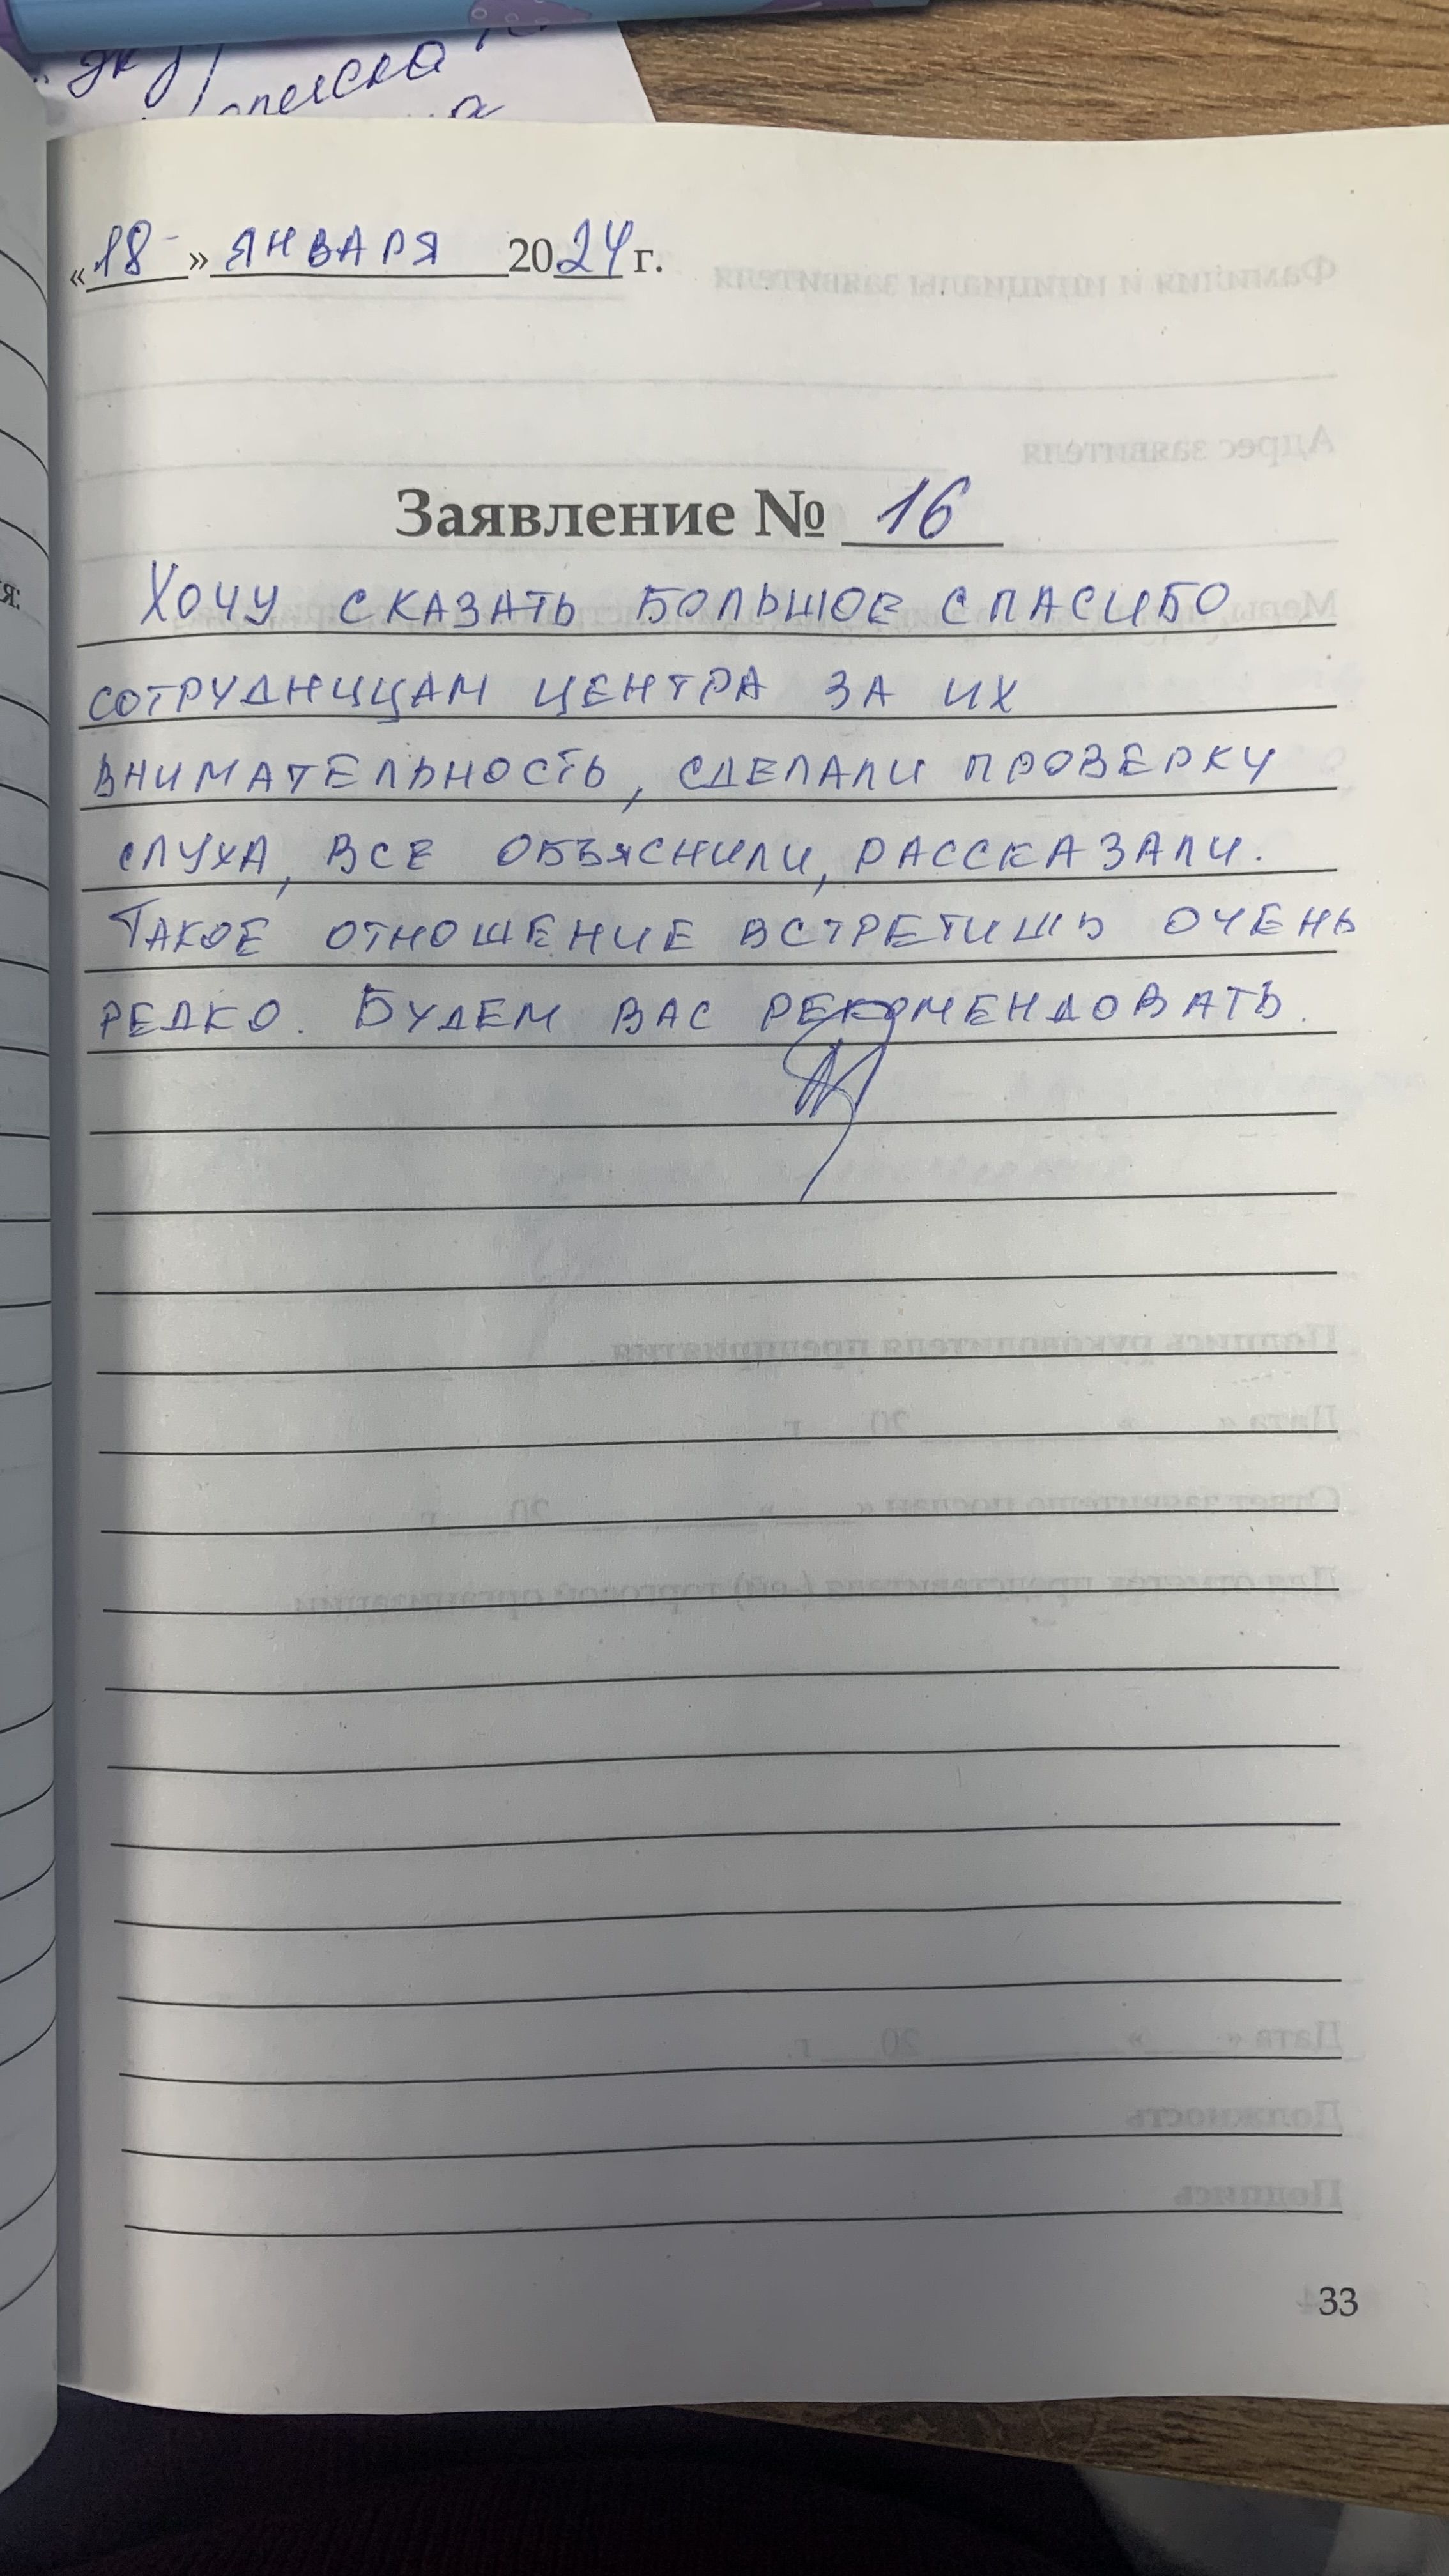 «18» ЯНВАРЯ 2024 г.
Заявление № 16
ХОЧУ СКАЗАТЬ БОЛЬШОЕ СПАСИБО
СОТРУДНИЦАМ ЦЕНТРА ЗА ИХ
ВНИМАТЕЛЬНОСТЬ, СДЕЛАЛИ ПРОВЕРКУ
СЛУХА, ВСЕ ОБЪЯСНИЛИ, РАССКАЗАЛИ.
ТАКОЕ ОТНОШЕНИЕ ВСТРЕТИШЬ ОЧЕНЬ
РЕДКО. БУДЕМ ВАС РЕКОМЕНДОВАТЬ.
33